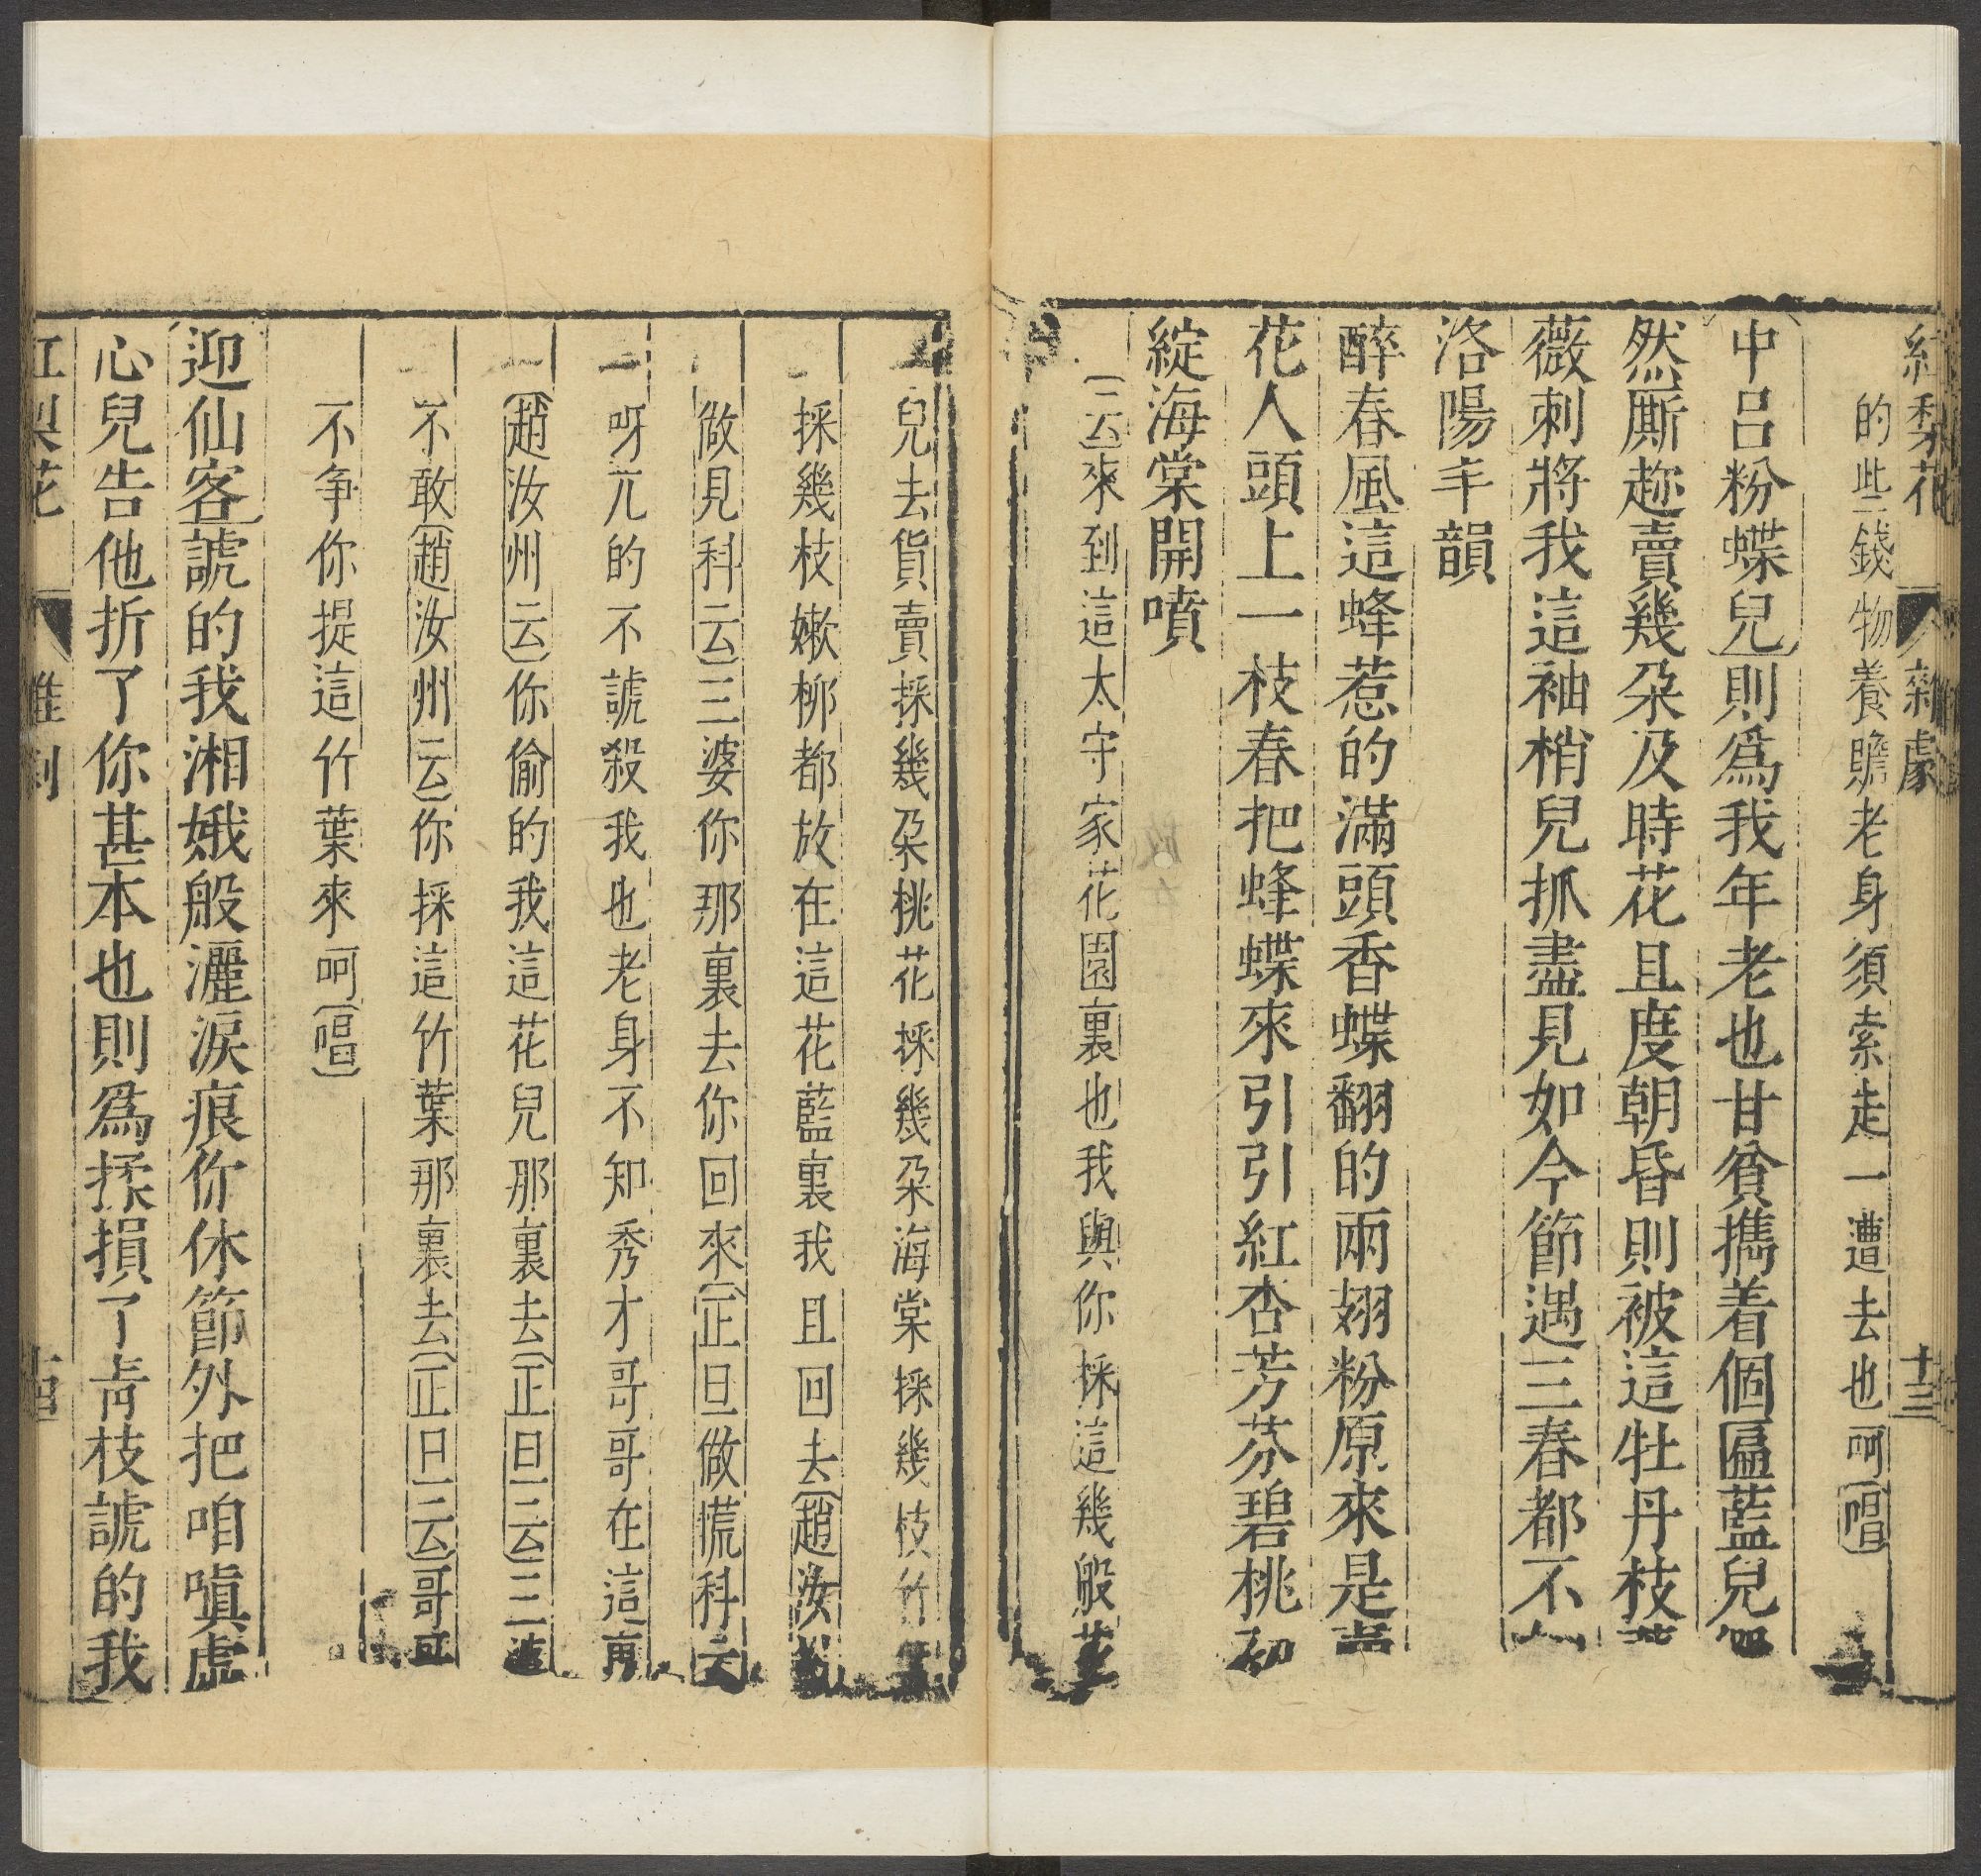 紅梨花 雜劇 十三
的些錢物養贍老身須索走一遭去也呵〔唱〕
〔中呂粉蝶兒〕則爲我年老也甘貧攜着個匾藍兒
然厮趂賣幾朶及時花且度朝昏則被這牡丹枝
薇刺將我這袖梢兒抓盡見如今節遇三春都不
洛陽丰韻
醉春風這蜂惹的滿頭香蝶翻的兩翅粉原來是
花人頭上一枝春把蜂蝶來引引紅杏芳芬碧桃初
綻海棠開噴
〔云〕來到這太守家花園裏也我與你採這幾般花
兒去貨賣採幾朶桃花採幾朶海棠採幾枝竹
採幾枝嫩柳都放在這花藍裏我且回去〔趙汝州
做見科云〕三婆你那裏去你回來〔正旦做慌科云
呀兀的不諕殺我也老身不知秀才哥哥在這
〔趙汝州云〕你偷的我這花兒那裏去〔正旦云〕三
不敢〔趙汝州云〕你採這竹葉那裏去〔正旦云〕哥哥
不争你提這竹葉來呵〔唱〕
迎仙客諕的我湘娥般灑淚痕你休節外把咱嗔虛
心兒告他折了你甚本也則爲揉損了靑枝諕的我
紅梨花 十四